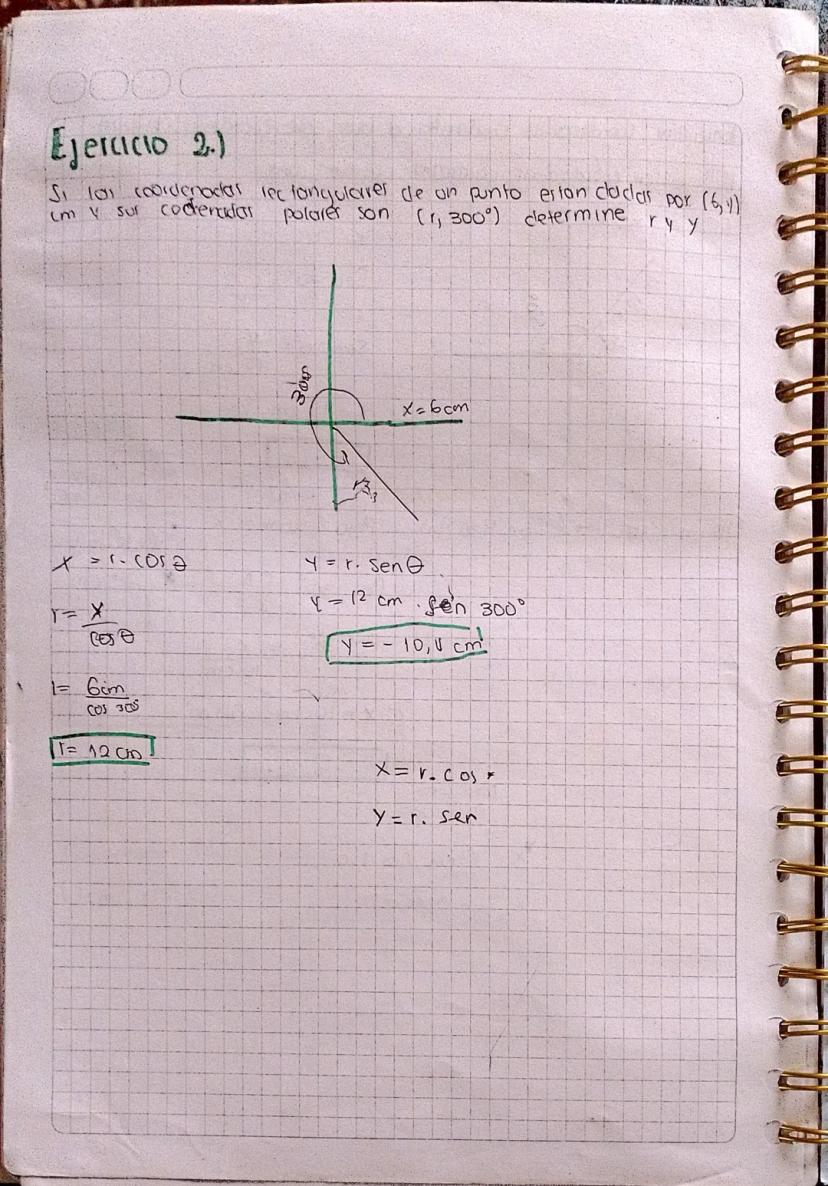 Ejercicio 2.)
Si las coordenadas rectangulares de un punto estan dadas por (6,y)
cm y sus codrenadas polares son (r, 300°) determine r y y
300°
x=6cm
x = r. cos θ
y = r. sen θ
y = 12 cm . sen 300°
r = x
cos θ
y = - 10,4 cm
r= 6cm
cos 300
r= 12 cm
x = r. cos
y = r. sen